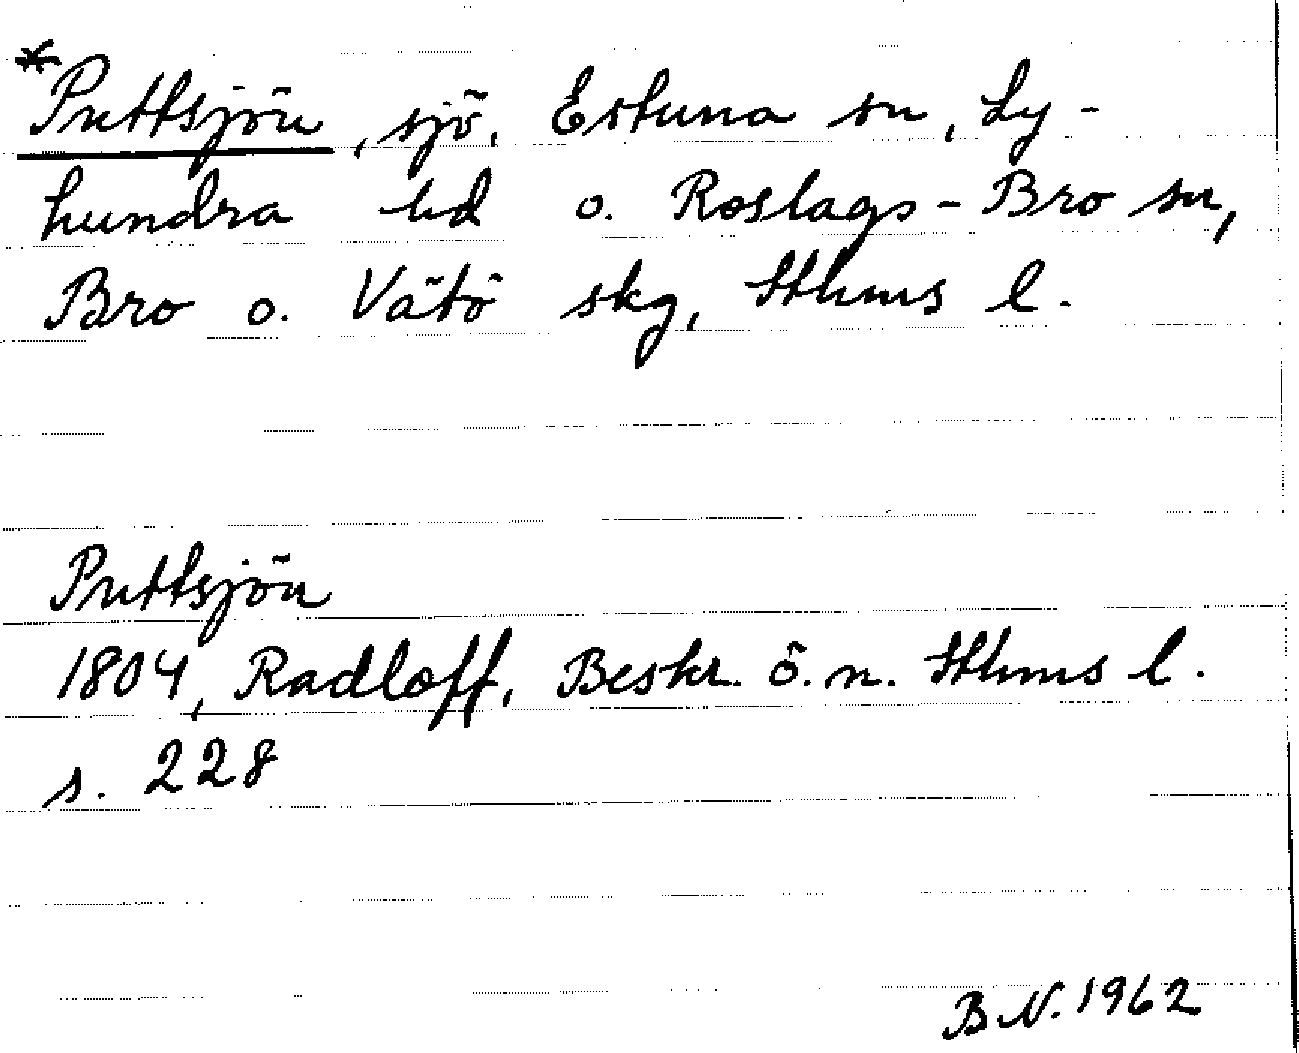 *Puttsjön, sjö, Estuna sn, Ly-
hundra hd o. Roslags-Bro sn,
Bro o. Vätö skg, Sthms l.
Puttsjön
1804, Radloff, Beskr. ö. n. Sthms l.
s. 228
B.N. 1962